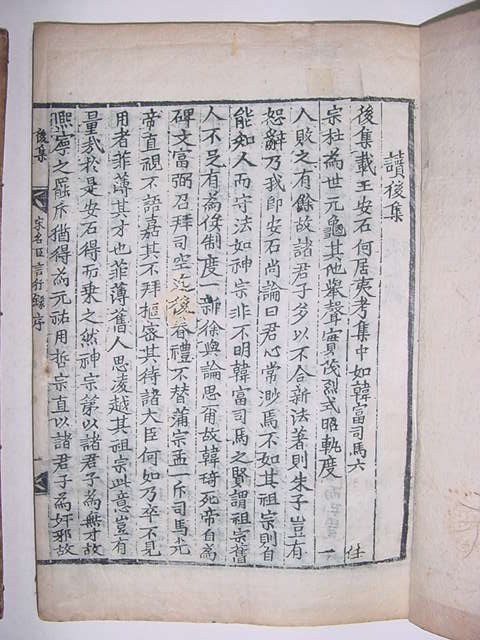 讀後集
後集載王安石何居夷考集中如韓富司馬六
宗杜為世元龜其他聲實茂烈式昭軌度
人敗之有餘故諸君子多以不合新法著則朱子豈有
恕辭乃我即安石尚論曰君心常渺焉不如其祖宗則自
能知人而守法如神宗非不明韓富司馬之賢謂祖宗舊
人不足有為俟制度一新徐與論思爾故韓琦死帝自為
碑文富弼召拜司空迄後眷禮不替蒲宗孟一斥司馬光
帝直視不語嘉其不拜樞密其待諸大臣何如乃卒不見
用者菲薄其才也菲薄舊人思凌越其祖宗此意豈有
量哉於是安石得而乘之然神宗第以諸君子為無才故
熙寧之厭斥猶得為元祐用哲宗直以諸君子為奸邪故
後集
宋名臣言行錄序
一